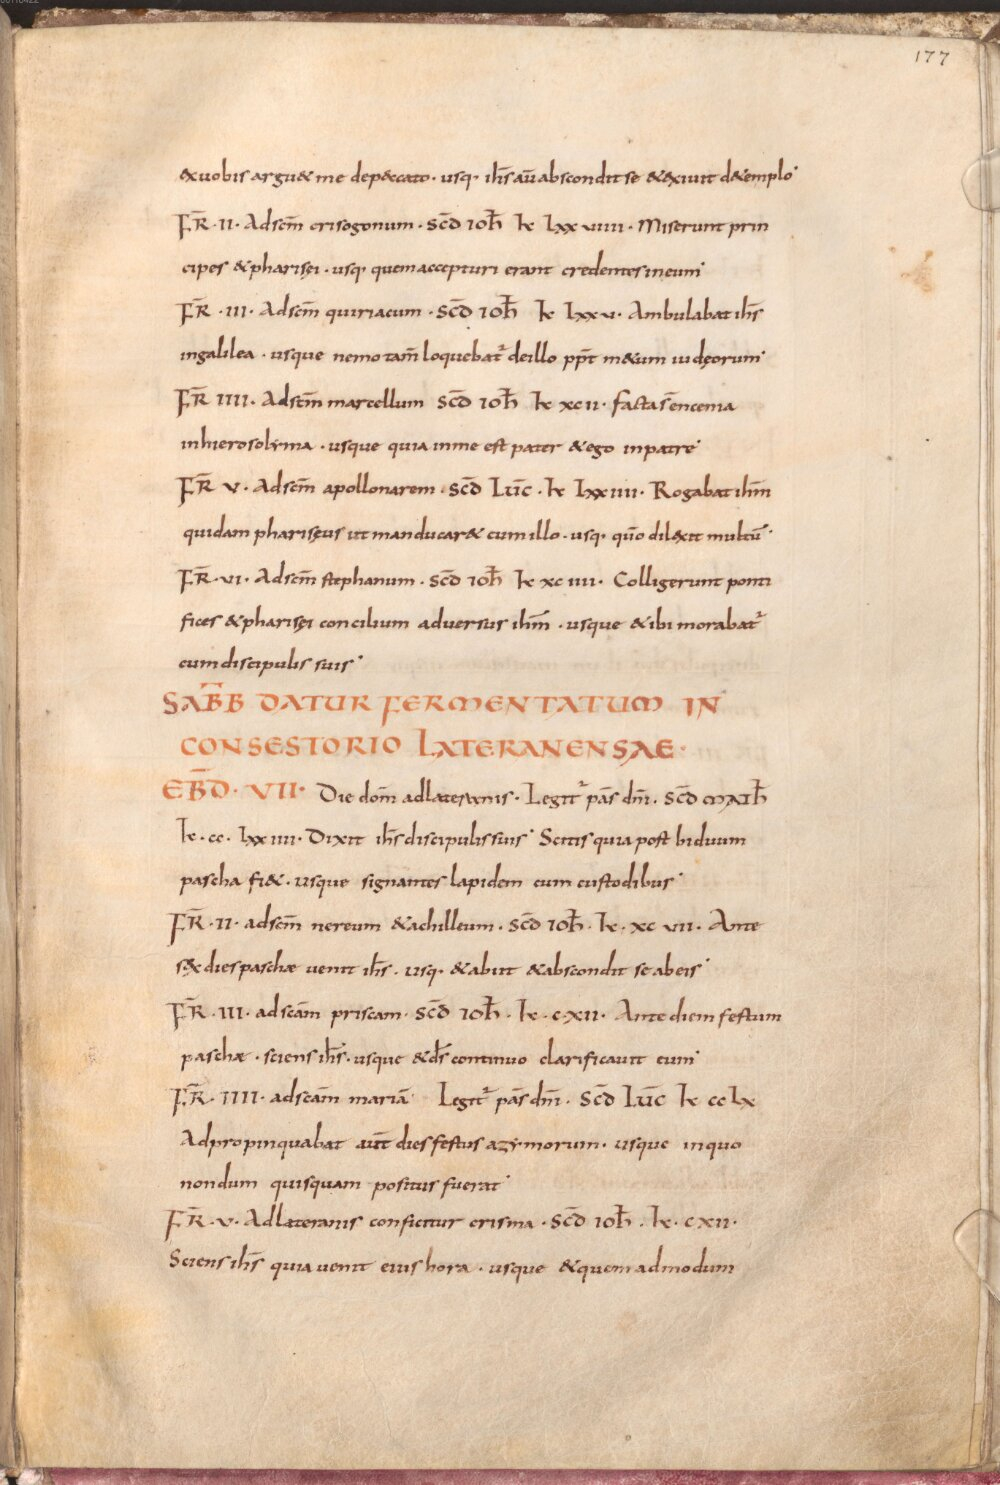 177
&uobis argu& me depeccato · usq· ihs au abscondit se & exiuit d&emplo·
FR · II · Ad scm crisogonum · scd ioh k LXXVIIII · Miserunt prin
cipes & pharisęi · usq· quem accepturi erant credentes in eum·
FR · III · Ad scm quiriacum · scd ioh k LXXV · Ambulabat ihs
in galilea · usque nemo tam loquebat de illo ppt m&um iudęorum·
FR IIII · Ad scm marcellum scd ioh k XCII · facta s encenia
in hierosolyma · usque quia in me est pater & ego in patre·
FR V · Ad scm apollonarem · scd Luc · k LXXIIII · Rogabat ihm
quidam pharisęus ut manducar& cum illo · usq· qūo dilexit multū·
FR · VI · Ad scm stephanum · scd ioh k XCIIII · Colligerunt ponti
fices & pharisęi concilium aduersus ihm · usque & ibi morabat
cum discipulis suis·
SABB DATUR FERMENTATUM IN
CONSESTORIO LATERANENSAE·
EBD · VII · Die dom ad lateranis · Legit pas dni · scd math
k · CC · LXXIIII · Dixit ihs discipulis suis· Scitis quia post biduum
pascha fi& · usque signantes lapidem cum custodibus·
FR · II · ad scm nereum & achilleum · scd ioh · k · XCVII · Ante
sex dies paschae uenit ihs · usq· & abiit & abscondit se ab eis·
FR · III · ad scam priscam · scd ioh · k · C·XII · Ante diem festum
paschae · sciens ihs · usque & ds continuo clarificauit eum·
FR · IIII · ad scam mariā· Legit pas dni · scd Luc k CCLX
Adpropinquabat aut dies festus azymorum · usque in quo
nondum quisquam positus fuerat·
FR · V · Ad Lateranis conficitur crisma · scd ioh · k · CXII ·
Sciens ihs quia uenit eius hora · usque & quemadmodum